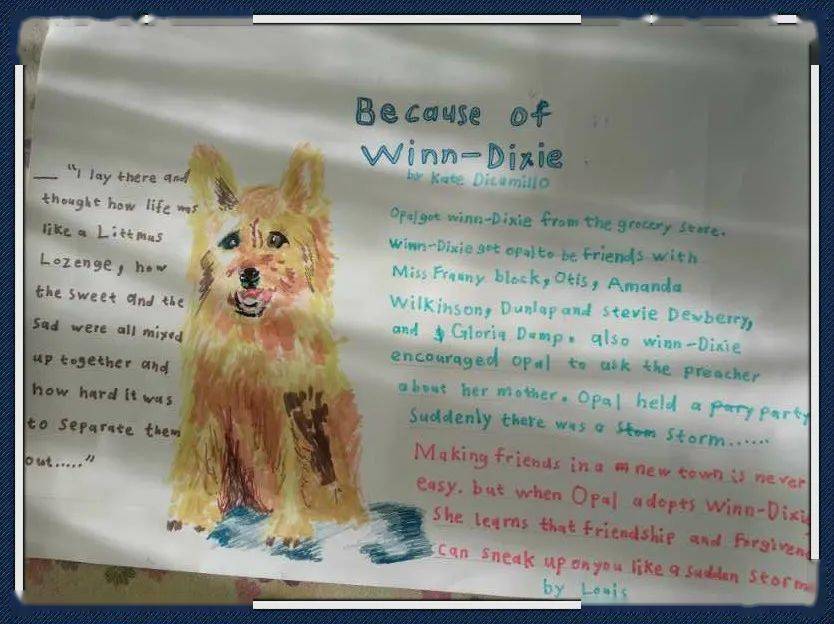 Because of
Winn-Dixie
by Kate Dicamillo
— "I lay there and
thought how life was
like a Littmus
Lozenge, how
the sweet and the
sad were all mixed
up together and
how hard it was
to separate them
out....."
Opal got winn-Dixie from the grocery store.
Winn-Dixie got opal to be friends with
Miss Franny block, Otis, Amanda
Wilkinson, Dunlap and stevie Dewberry,
and Gloria Dump. also winn-Dixie
encouraged opal to ask the preacher
about her mother. Opal held a pary party
Suddenly there was a Stom Storm......
Making friends in a new town is never
easy. but when Opal adopts Winn-Dixie
She learns that friendship and Forgiven
can sneak up on you like a sudden storm
by Louis